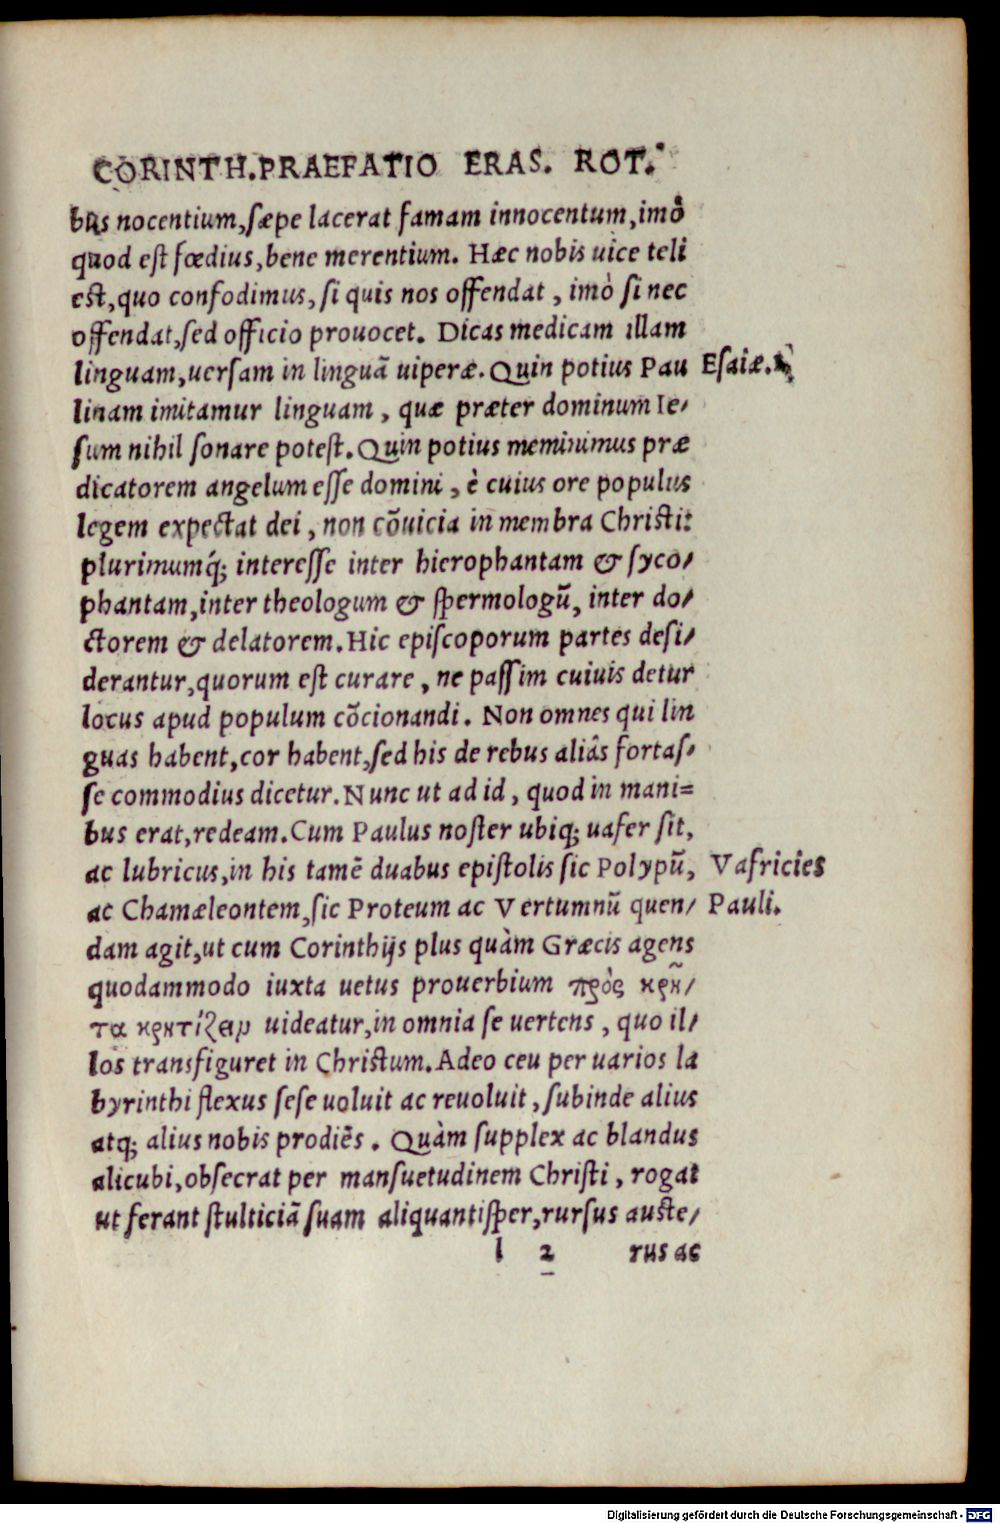 CORINTH. PRAEFATIO ERAS. ROT.
bus nocentium, sæpe lacerat famam innocentum, imò
quod est fœdius, bene merentium. Hæc nobis uice teli
est, quo confodimus, si quis nos offendat, imò si nec
offendat, sed officio prouocet. Dicas medicam illam
linguam, uersam in linguā uiperæ. Quin potius Pau
Esaiæ.
linam imitamur linguam, quæ præter dominum Ie/
sum nihil sonare potest. Quin potius meminimus præ
dicatorem angelum esse domini, è cuius ore populus
legem expectat dei, non cōuicia in membra Christi:
plurimumq́; interesse inter hierophantam & syco/
phantam, inter theologum & spermologū, inter do/
ctorem & delatorem. Hic episcoporum partes desi/
derantur, quorum est curare, ne passim cuiuis detur
locus apud populum cōcionandi. Non omnes qui lin
guas habent, cor habent, sed his de rebus aliâs fortas/
se commodius dicetur. Nunc ut ad id, quod in mani=
bus erat, redeam. Cum Paulus noster ubiq; uafer sit,
ac lubricus, in his tamē duabus epistolis sic Polypū,
Vafricies
ac Chamæleontem, sic Proteum ac Vertumnū quen/
Pauli.
dam agit, ut cum Corinthijs plus quàm Græcis agens
quodammodo iuxta uetus prouerbium πρὸς κρῆ/
τα κρητίζειν uideatur, in omnia se uertens, quo il/
los transfiguret in Christum. Adeo ceu per uarios la
byrinthi flexus sese uoluit ac reuoluit, subinde alius
atq; alius nobis prodiēs. Quàm supplex ac blandus
alicubi, obsecrat per mansuetudinem Christi, rogat
ut ferant stulticiā suam aliquantisper, rursus auste/
l 2 rus ac
Digitalisierung gefördert durch die Deutsche Forschungsgemeinschaft - DFG